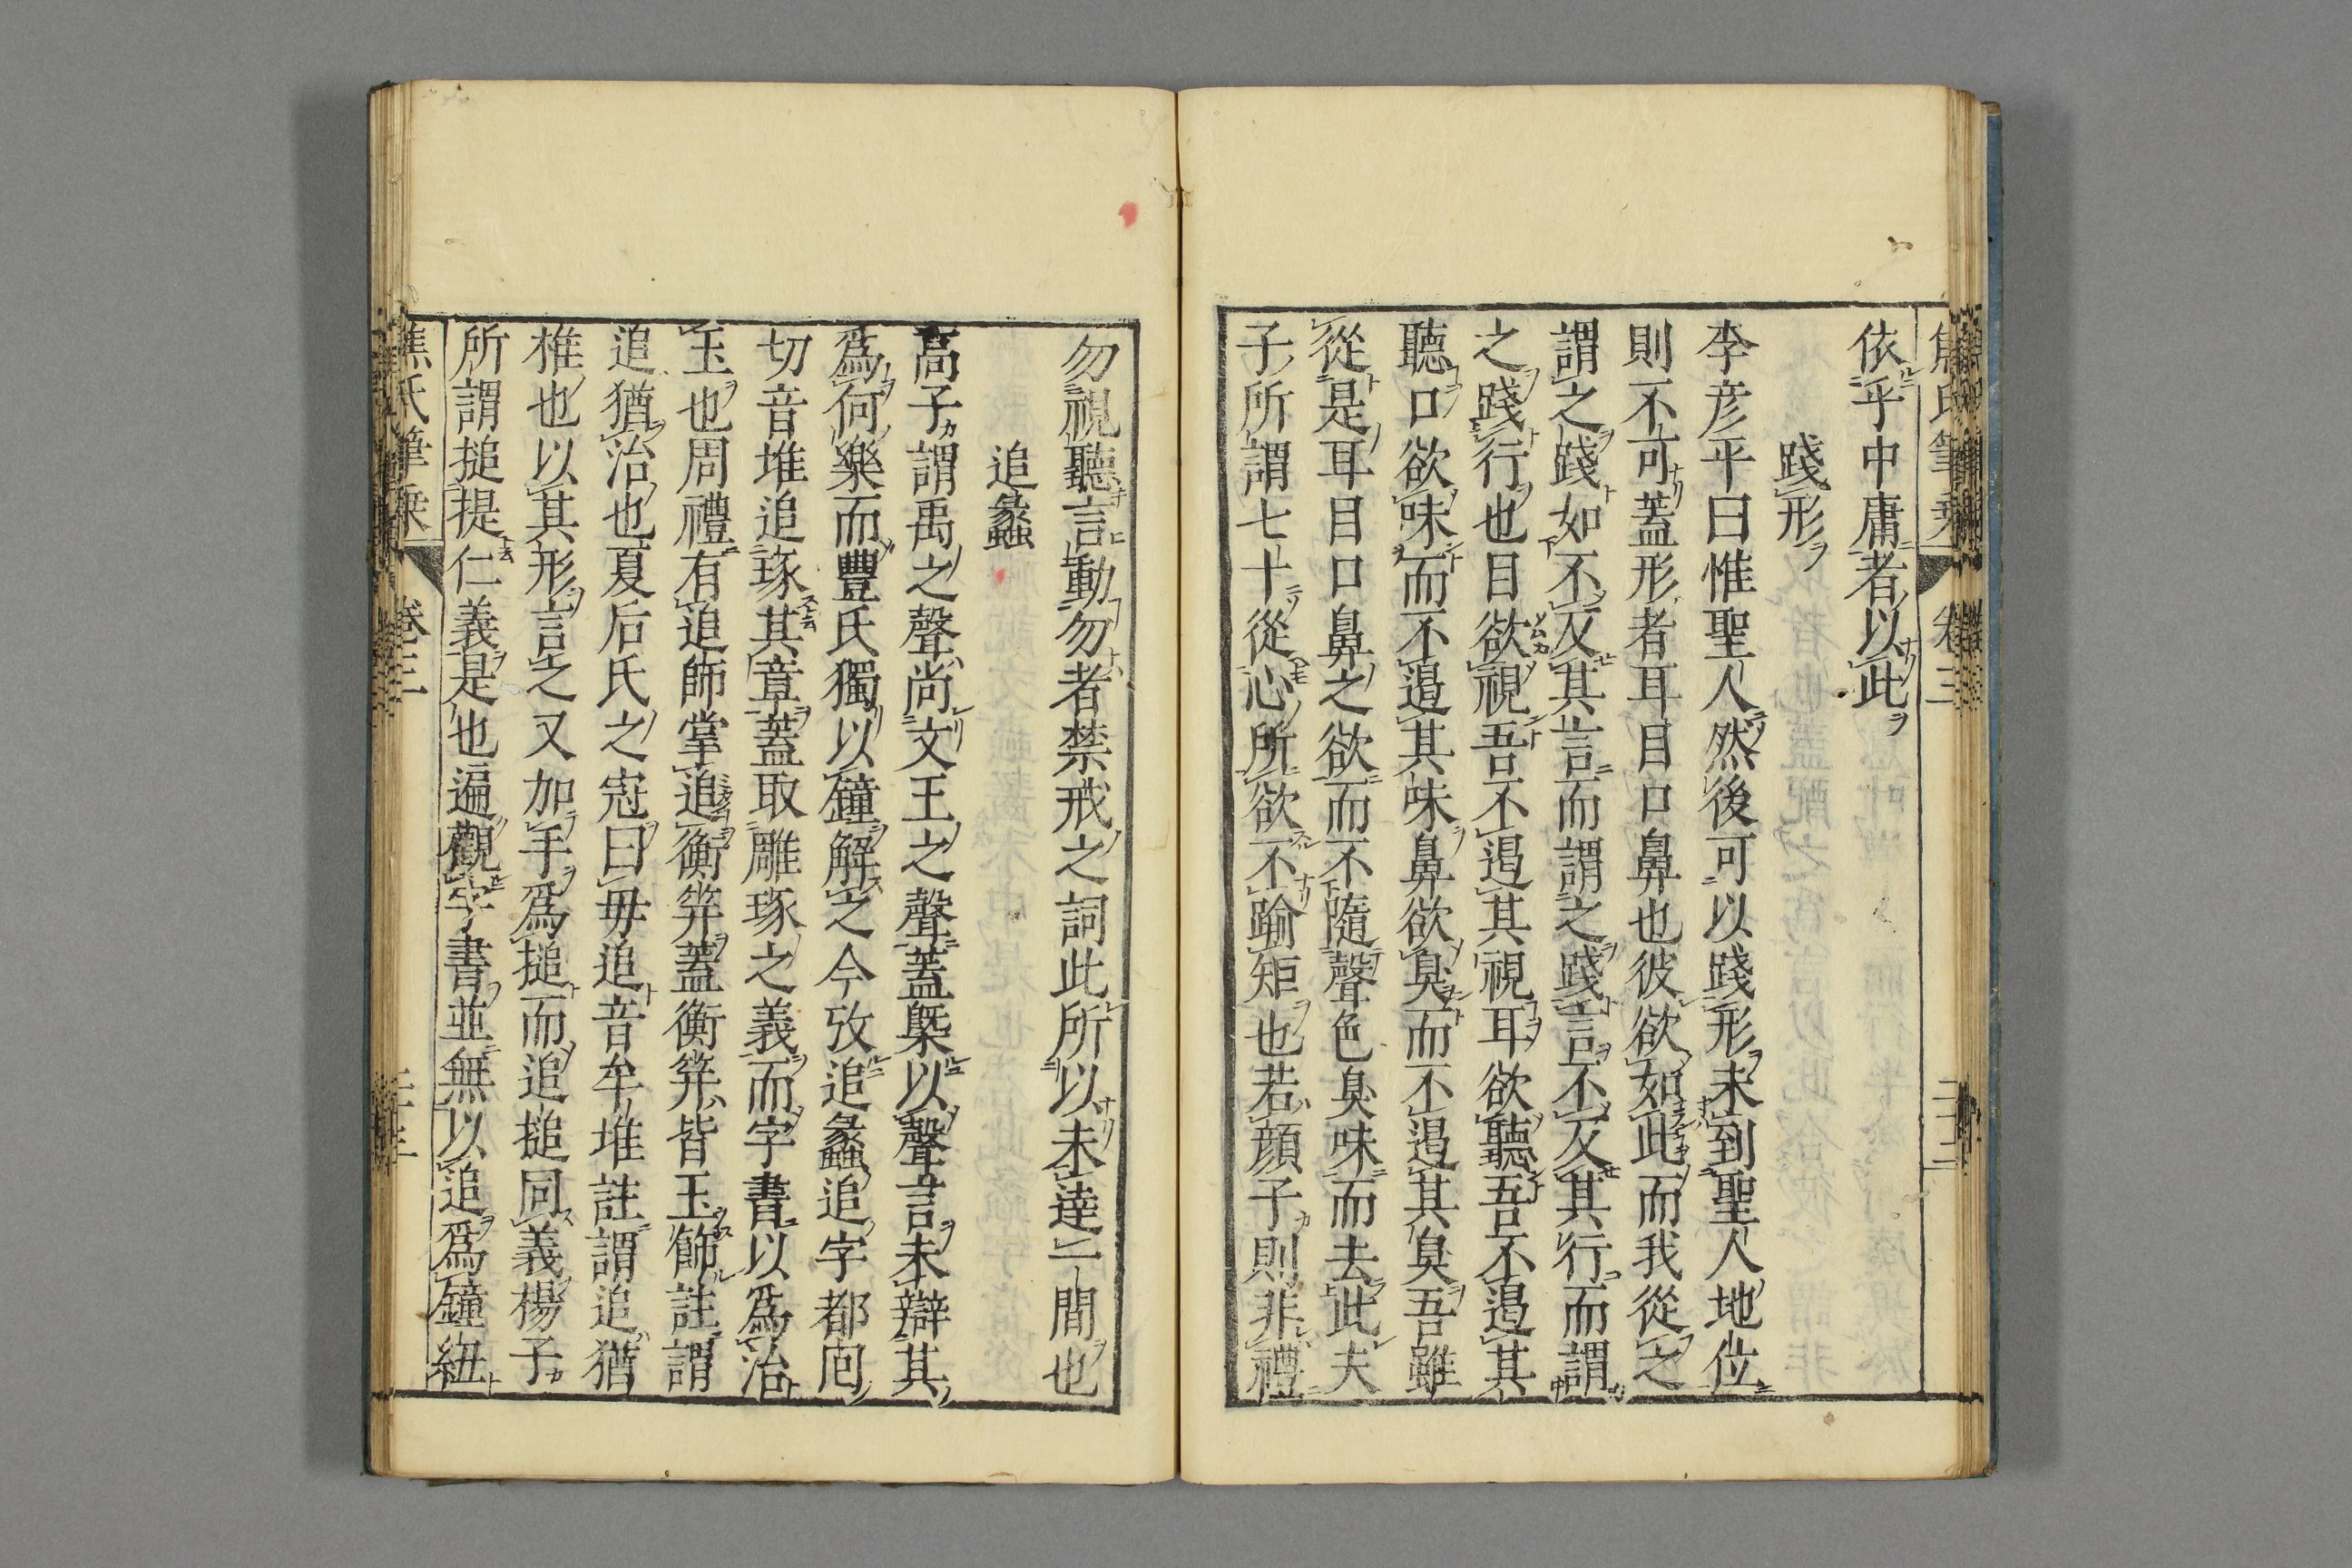 依乎中庸者以此
踐形
李彦平曰惟聖人然後可以踐形未到聖人地位
則不可蓋形者耳目口鼻也彼欲如此而我從之
謂之踐如不反其言而謂之踐言不反其行而謂
之踐行也目欲視吾不遏其視耳欲聽吾不遏其
聽口欲味而不遏其味鼻欲臭而不遏其臭吾雖
從是耳目口鼻之欲而不隨聲色臭味而去此夫
子所謂七十從心所欲不踰矩也若顔子則非禮
勿視聽言動勿者禁戒之詞此所以未達一間也
追蠡
高子謂禹之聲尚文王之聲蓋槩以聲言未辯其
爲何樂而豐氏獨以鐘解之今攷追蠡追字都囘
切音堆追琢其章蓋取雕琢之義而字書以爲治
玉也周禮有追師掌追衡笄蓋衡笄皆玉飾註謂
追猶治也夏后氏之冠曰毋追音牟堆註謂追猶
椎也以其形言之又加手爲搥而追搥同義楊子
所謂搥提仁義是也遍觀字書並無以追爲鐘紐
焦氏筆乗 卷三